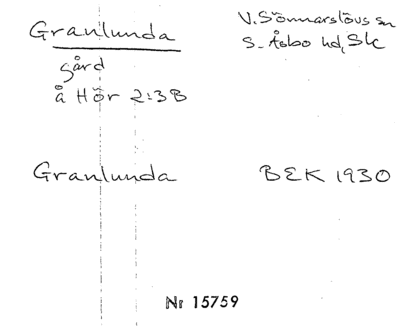 Granlunda V. Sönnarslövs sn
S. Åsbo hd, Sk
gård
å Hör 2:3 B
Granlunda BEK 1930
Nr 15759